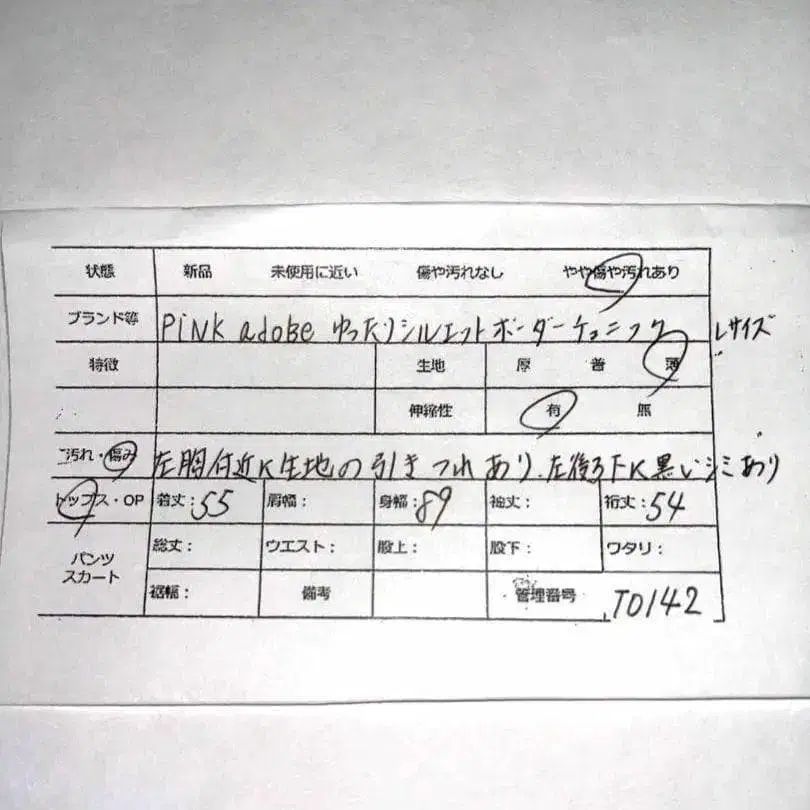 状態 新品 未使用に近い 傷や汚れなし やや傷や汚れあり
ブランド等 PINK adobe ゆったりシルエットボーダーチュニック Lサイズ
特徴 生地 厚 普 薄
伸縮性 有 無
汚れ・傷み 左胸付近に生地の引きつれあり、左後ろ下に黒いシミあり
トップス・OP 着丈:55 肩幅: 身幅:89 袖丈: 裄丈:54
パンツ スカート 総丈: ウエスト: 股上: 股下: ワタリ:
裾幅: 備考 管理番号 T0142